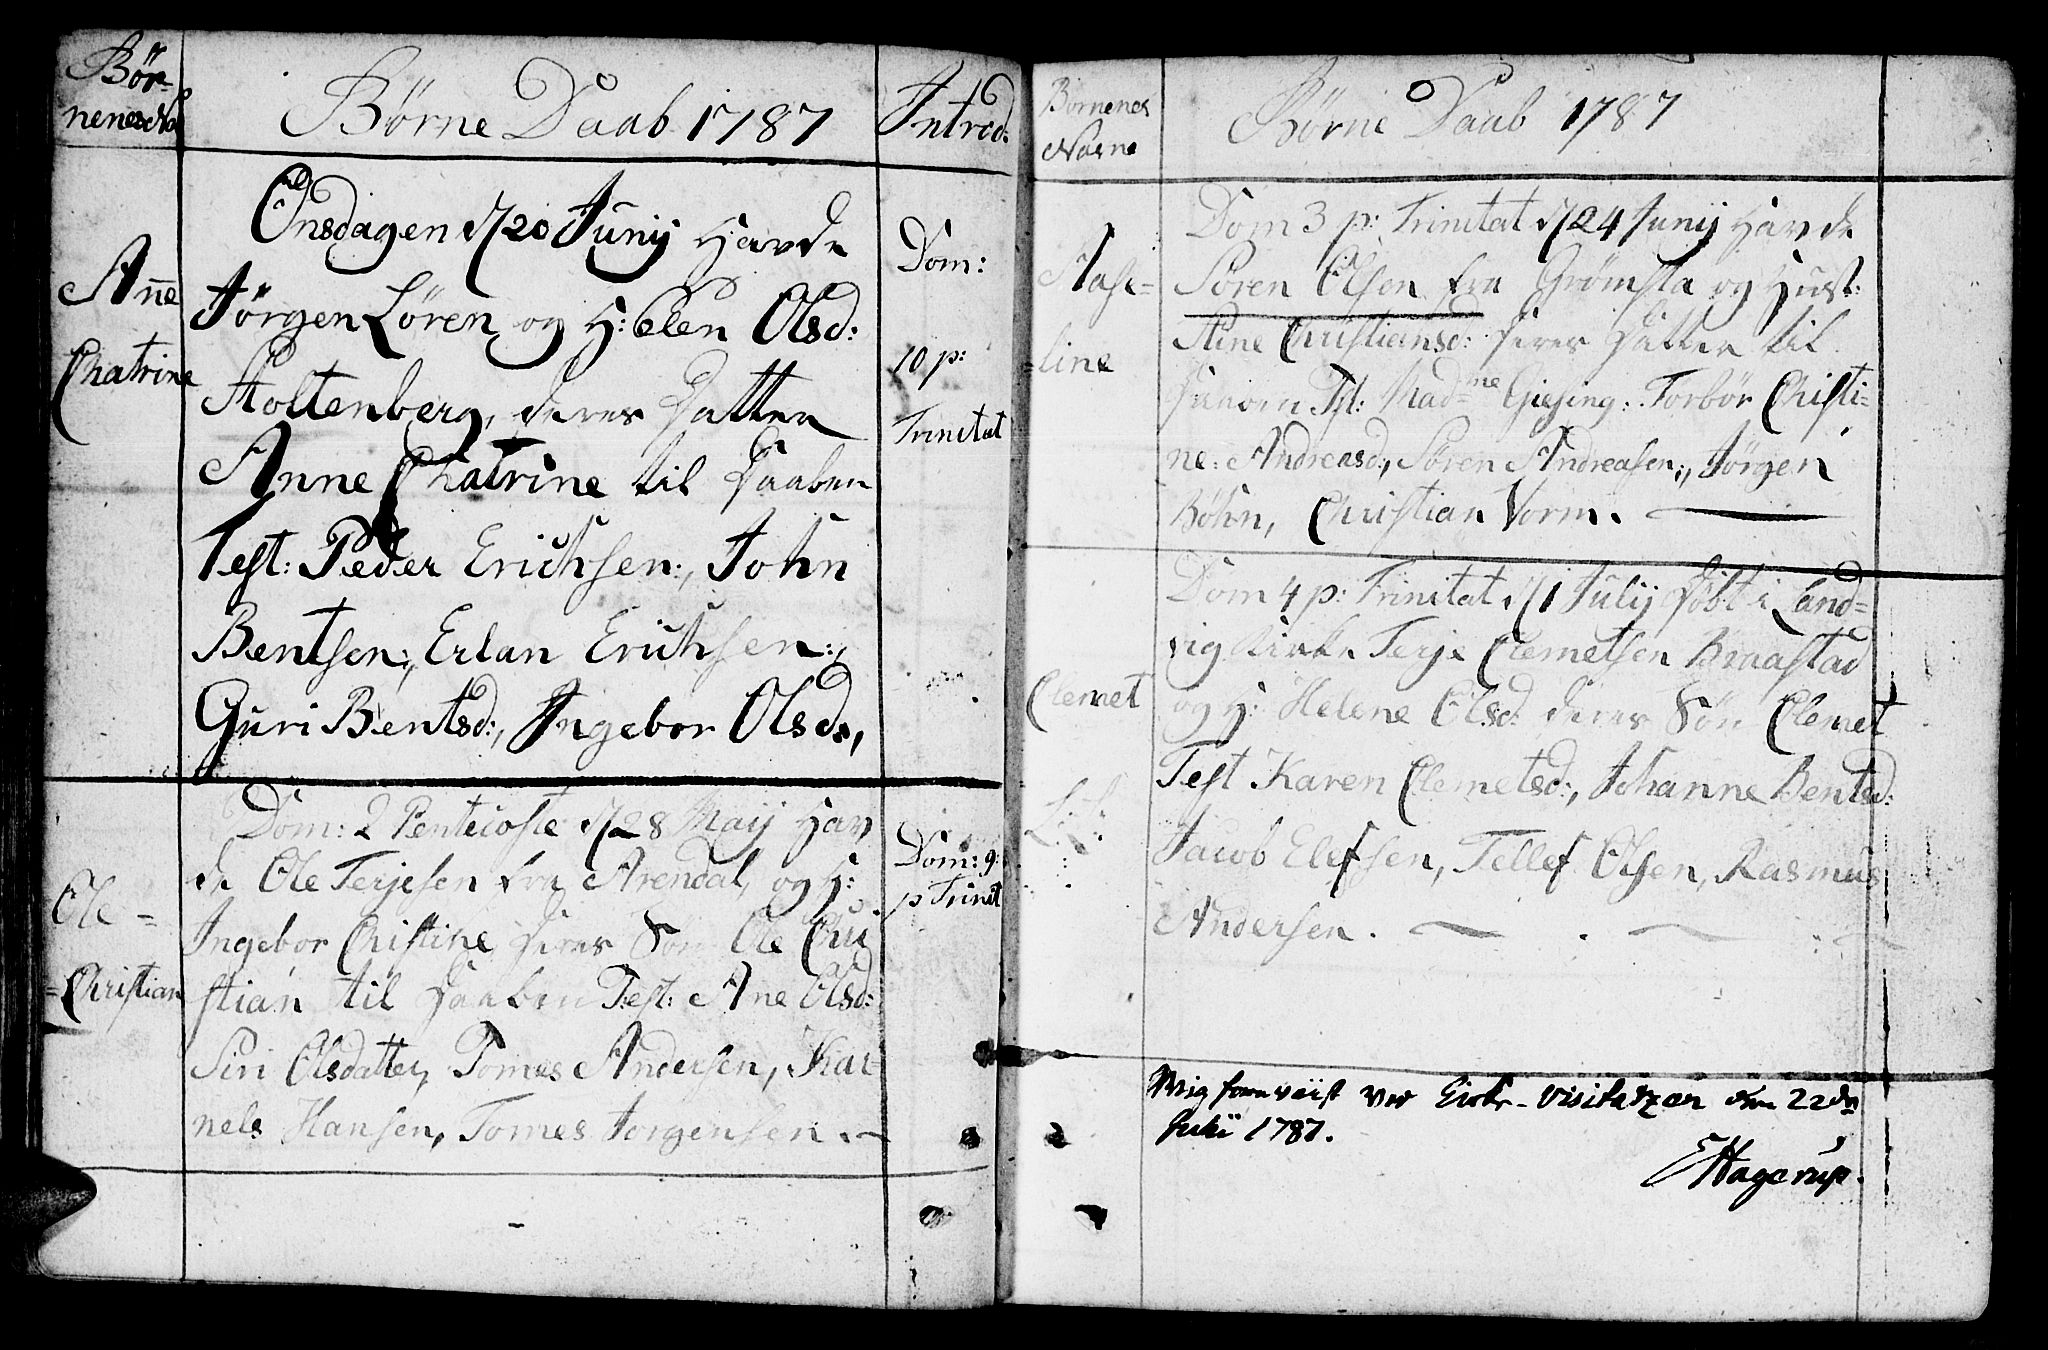 Bør-
nenes Na
Børne Daab 1787
Introd:
Anne
Chatrine
Onsdagen d/20 Junij Havde
Jørgen Løren og H: Elen Olsd:
Stoltenberg, deres Datter
Anne Chatrine til Daaben
Test: Peder Erichsen:, John
Bentsen:, Erlan Erichsen:,
Guri Bentsd:, Ingebor Olsd:,
Dom:
10 p:
Trinitat
Ole-
=Christian
Dom: 2 Pentecoste d/28 Maij Hav
de Ole Terjesen fra Arendal, og H:
Ingebor Christine deres Søn Ole Chri
stian til Daaben Test: Ane Olsd:
Siri Olsdatter, Tomes Andersen, Kar
nels Hansen, Tomes Jørgensen.
Dom: 9
p Trinit
Børnenes
Navne
Børne Daab 1787
Stase=
=line
Dom 3 p: Trinitat d/24 Junij Havde
Søren Olsen fra Grømsta og Hust:
Stine Christiansd: deres Datter til
Tst: Mad=me Giesing: Torbør Christi=
ne: Andreasd:, Søren Andreasen:, Jørgen
Bøhn, Christian Vorm.
Clemet
Dom 4 p: Trinitat d/1 Julij døbt i Land=
vig Kirke Terje Clemetsen Braastad
og H: Helene Olsd: deres Søn Clemet
Test Karen Clemetsd:, Johanne Bentsd:
Jacob Elefsen, Tellef Olsen, Rasmus
Andersen.
Mig foreviist ved Kirke-Visitatzen den 22de
Julii 1787.
EHagerup.